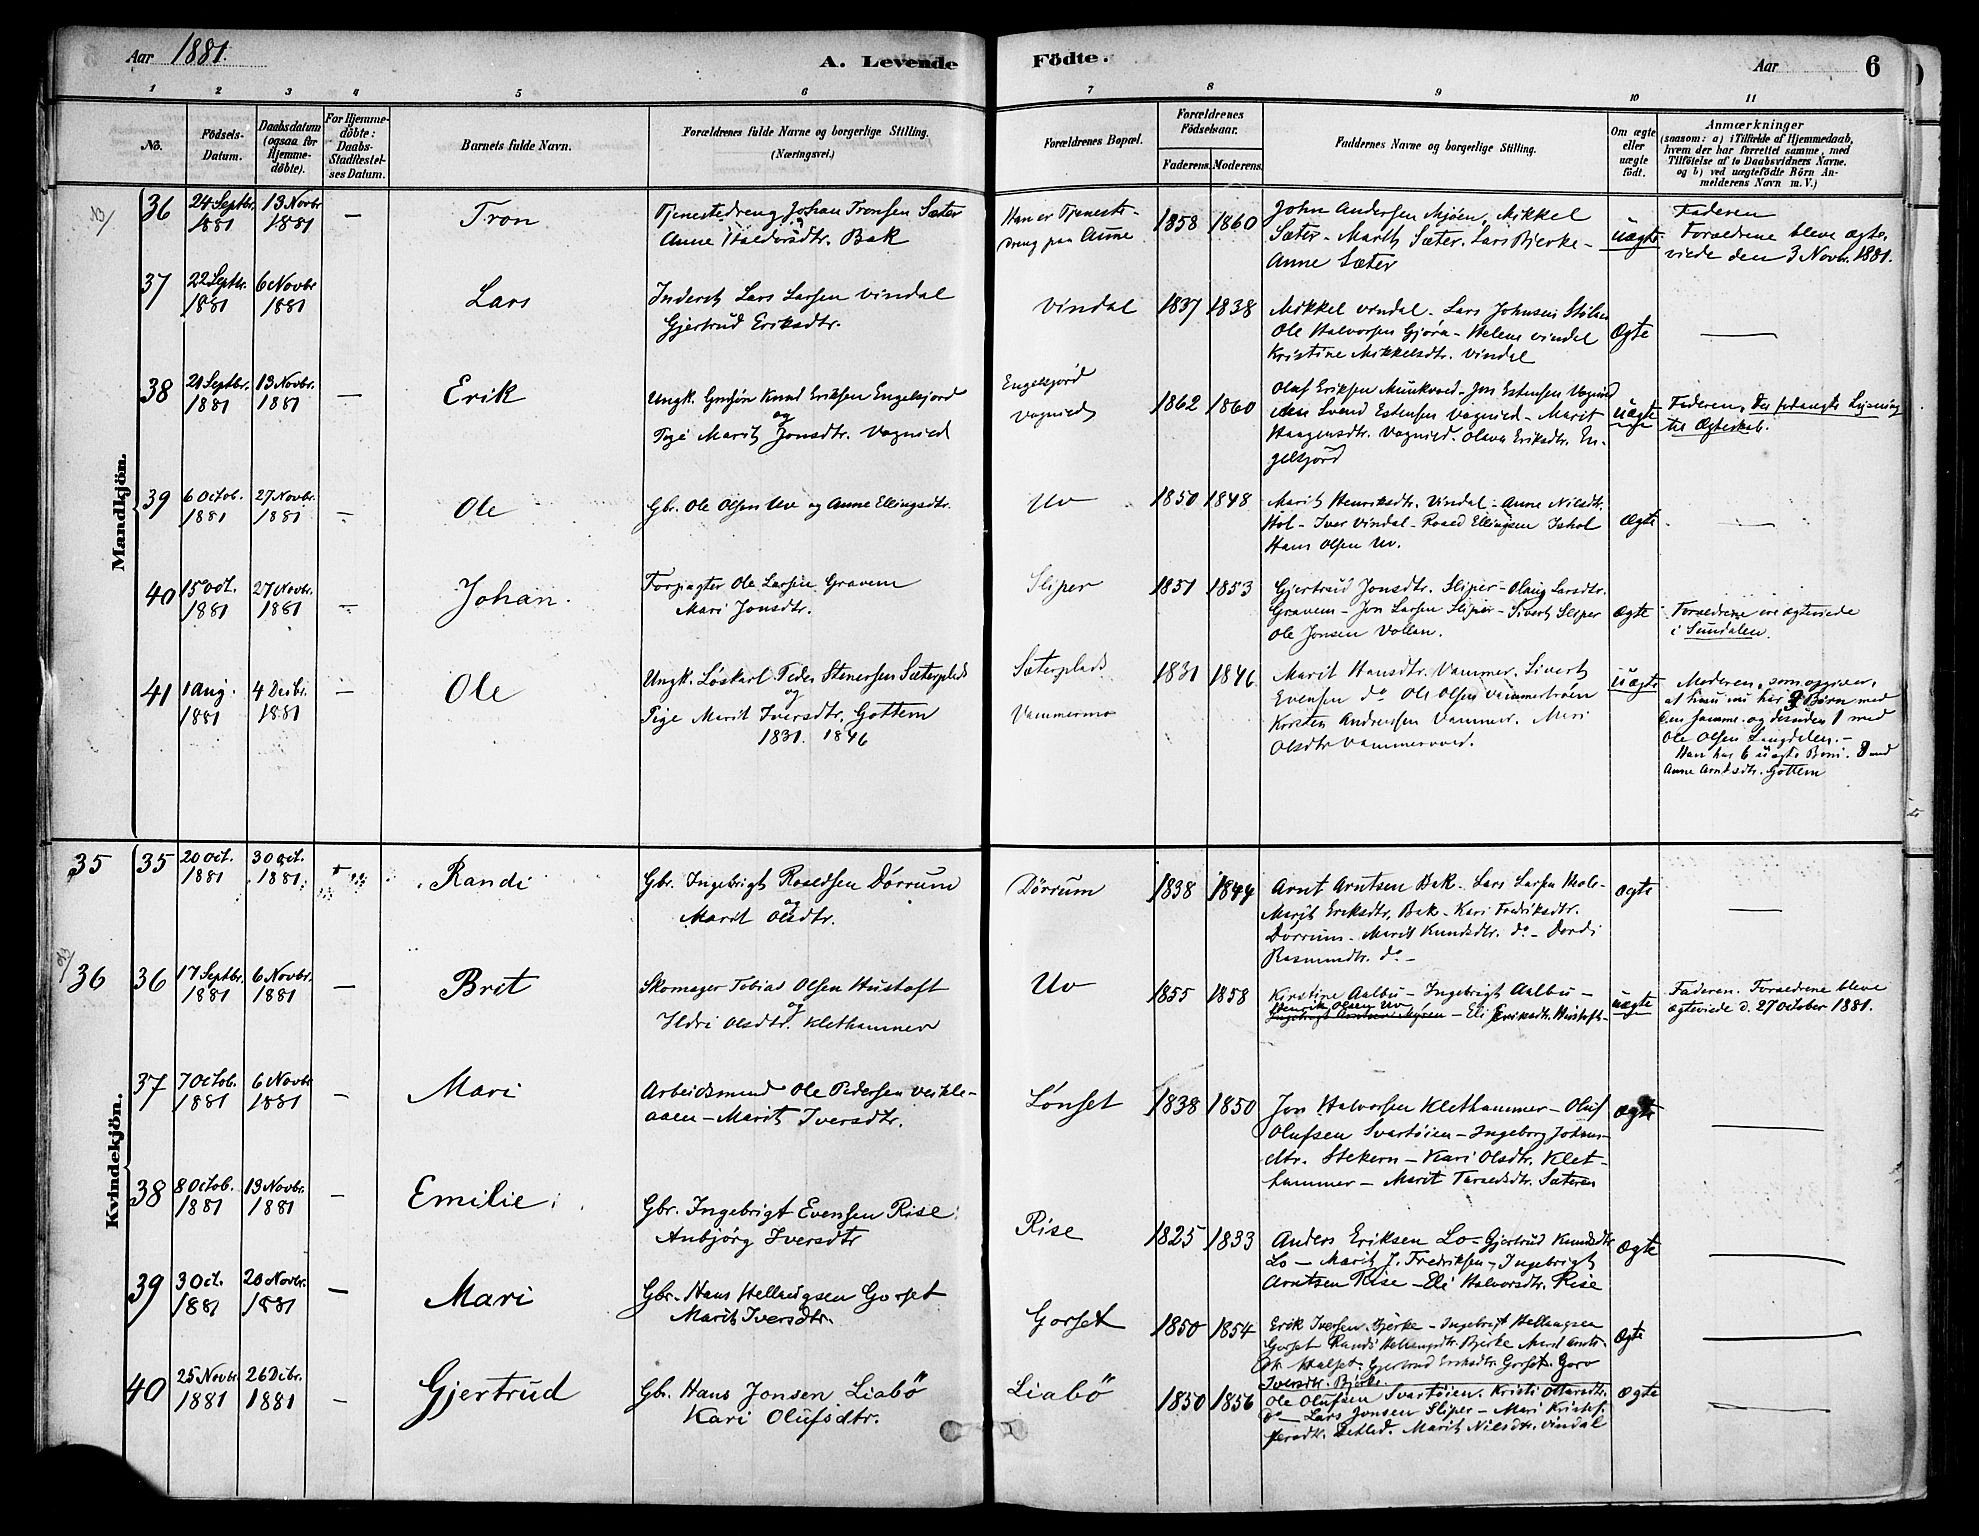 Aar 1881. A. Levende Födte. Aar 6
1 2 3 4 5 6 7 8 9 10 11
No.
Födsels-Datum.
Daabsdatum (ogsaa for Hjemme-döbte).
For Hjemme-döbte: Daabs-Stadfæstel-ses Datum.
Barnets fulde Navn.
Forældrenes fulde Navne og borgerlige Stilling. (Næringsvei.)
Forældrenes Bopæl.
Forældrenes Födselsaar.
Faderens. Moderens.
Faddernes Navne og borgerlige Stilling.
Om ægte eller uægte födt.
Anmærkninger
(saasom: a) i Tilfælde af Hjemmedaab,
hvem der har forrettet samme, med
Tilföielse af to Daabsvidners Navne.
og b) ved uægtefödte Börn An-
melderens Navn m. V.)
Mandkjön.
36 24 Septbr. 1881 13 Novbr 1881 — Tron
Tjenestedreng Johan Tronsen Sæter
Anne Haldorsdtr. Bak
Han er Tjeneste-
dreng paa Aune
1858 1860
John Andersen Mjöen, Mikkel
Sæter - Marit Sæter. Lars Bjerke -
Anne Sæter
uægte
Faderen
Forældrene bleve ægte-
viede den 3 Novbr. 1881.
37 22 Septbr. 1881 6 Novbr 1881 Lars
Inderst Lars Larsen Vindal
Gjertrud Eriksdtr.
Vindal
1837 1838
Mikkel Vindal - Lars Johnsen Stölen
Ole Halvorsen Gjöra - Helene Vindal
Kristine Mikkelsdtr. Vindal
Ægte —
38 21 Septbr. 1881 13 Novbr. 1881 — Erik
Ungk. Gmsön Knud Eriksen Engelsjord
og
Pige Marit Jonsdtr. Vognild
Engelsjord
Vognild
1862 1860
Oluf Eriksen Munkvold - Jon Estensen Vognild
Svend Estensen Vognild - Marit
Haagensdtr. Vognild. Olava Eriksdtr. En-
gelsjord
uægte
Faderen, Der forlangte Lysning
til Ægteskab.
39 6 Octob. 1881 27 Novbr. 1881 — Ole
Gbr. Ole Olsen Uv og Anne Ellingsdtr.
Uv
1850 1848
Marit Henriksdtr. Vindal - Anne Nilsdtr.
Hol - Iver Vindal - Roald Ellingsen Ishol
Hans Olsen Uv.
Ægte —
40 15 Oct. 1881 27 Novbr. 1881 — Johan.
Forpagter Ole Larsen Gravem
Mari Jonsdtr.
Sliper
1851 1853
Gjertrud Jonsdtr. Sliper - Olaug Larsdtr.
Gravem - Jon Larsen Sliper - Sivert Sliper
Ole Jonsen Vollan.
ægte
Forældrene ere ægteviede
i Sundalen.
41 1 Aug. 1881 4 Decbr. 1881 — Ole
Ungk. Löskarl Peder Stenersen Sæterplads
og
Pige Marit Iversdtr. Gottem
1831. 1846
Sæterplads
Vammermo
1831 1846
Marit Hansdtr. Vammer. Sivert
Evensen do Ole Olsen Vammerbroen
Karsten Andreassen Vammer. Mari
Olsdtr Vammervold.
uægte
Moderen, som opgiver,
at hun nu har Börn med
den samme og desuden 1 med
Ole Olsen Langdalen. -
Han har 6 uægte Börn.
Anne Arntsdtr. Gottem
Kvindekjön.
35 35 20 Oct. 1881 30 Oct. 1881 Randi
Gbr. Ingebrigt Roaldsen Dörrum
og
Marit Olsdtr.
Dörrum
1838 1844
Arnt Arntsen Bak - Lars Larsen
Marit Eriksdtr. Bak - Kari Fredriksdtr.
Dörrum - Marit Knudsdtr. do - Dordi
Rasmusdtr. do -
ægte —
36 36 17 Septbr. 1881 6 Novbr. 1881 — Brit
Skomager Tobias Olsen Hustoft
og
Ildri Olsdtr. Klethammer
Uv
1855 1858
Kirstine Aalbu - Ingebrigt Aalbu -
Henrik Olsen Uv
Ingebrigt Arntsen Myren - Eli Eriksdtr. Hustoft -
uægte
Faderen. Forældrene bleve
ægteviede d. 27 October 1881.
37 7 Octob. 1881 6 Novbr 1881 — Mari
Arbeidsmand Ole Pedersen Veikle-
aaen - Marit Iversdtr.
Lönset
1838 1850
Jon Halvorsen Klethammer - Oluf
Olufsen Svartöien - Ingeborg Johns-
dtr. Stekern - Kari Olsdtr. Klet-
hammer - Marit Taraldsdtr. Sæteren
ægte —
38 8 Octob. 1881 13 Novbr. 1881 — Emilie
Gbr. Ingebrigt Evensen Rise
Anbjörg Iversdtr
Rise
1825 1833
Anders Eriksen Lo - Gjertrud Knudsdtr
Lo - Marit J. Fredriksen - Ingebrigt
Arntsen Rise - Eli Halvorsdtr. Rise
Ægte —
39 3 Oct. 1881 20 Novbr. 1881 — Mari
Gbr. Hans Hellaugsen Gorset
Marit Iversdtr.
Gorset
1850 1854
Erik Iversen Bjerke - Ingebrigt Hellaugsen
Gorset Randi Hellaugsdtr. Bjerke Marit Arnts-
dtr. Halset. Gjertrud Eriksdtr. Gorset. Goro
Iversdtr. Bjerke.
Ægte —
40 25 Novbr 1881 26 Dcbr. 1881 — Gjertrud
Gbr. Hans Jonsen Liabö
Kari Olufsdtr.
Liabö
1850 1856
Ole Olufsen Svartöien. Kristi Ottarsdtr.
do - Lars Jonsen Sliper - Mari Kristof-
fersdtr. Detled. Marit Nilsdtr. Vindal
ægte —